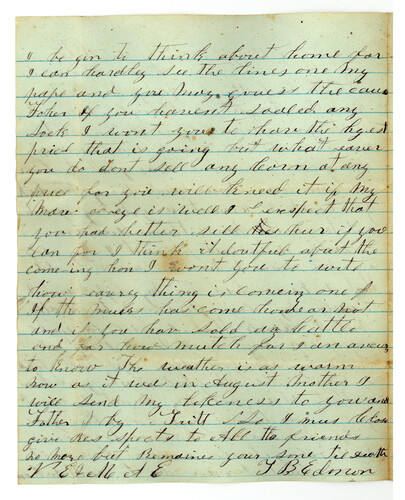 I be gin to think about home for
I can hardly see the lines one my
pape and you may guess the caus
Father if you havent sadled any
Sock I wont you to have the hyest
prise that is going but what eaver
you do dont sell any Corn at any
price for you will kneed it if my
mare is well I exspect that
you had better sell her if you
can for I think it doutful about the
comeing hon I wont you to write
how evrey thing is comein one &
If the mules has come home or not
and if you have sold an Cattle
and for how mutch for I an ancus
to know The weather is as warm
now as it was in August Mother I
will send my tokeness to you and
Father by Tritt So I mus Close
give Res spects to All the friends
no more but Remaines your sone til death
T B Edmon